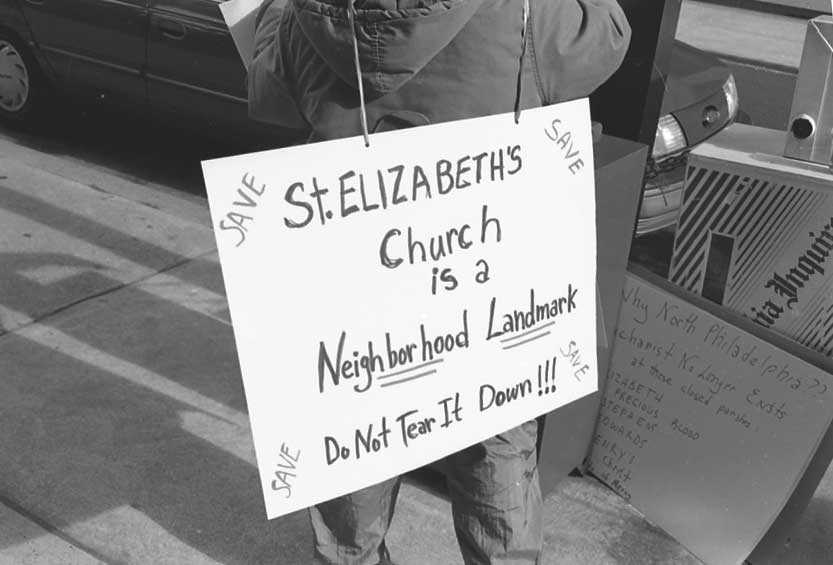 SAVE
SAVE
St. ELIZABETH'S
Church
is a
Neighborhood Landmark
SAVE
Do Not Tear It Down!!!
SAVE
ia Inquire
Why North Philadelphia ??
No Longer Exists
at these closed parishes:
ZABETH
PRECIOUS BLOOD
STEPHEN
DWARDS
ENRY'S
Christ
of Mercy